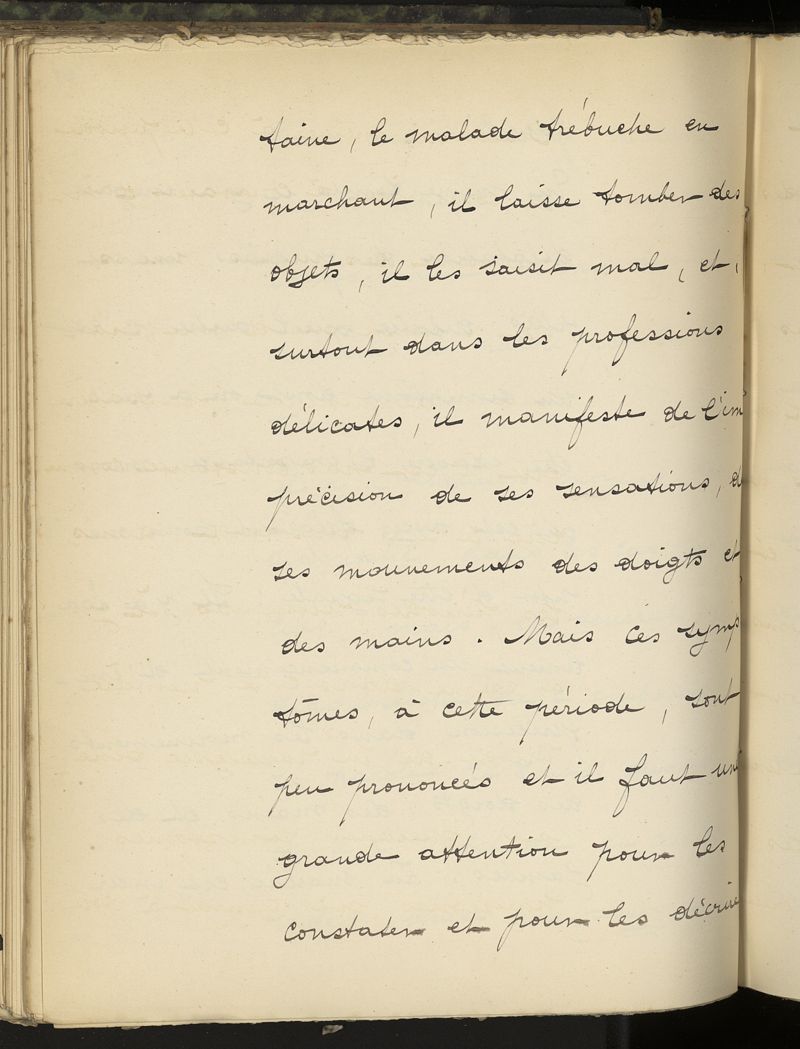 taine, le malade trébuche en
marchant, il laisse tomber des
objets, il les saisit mal, et,
surtout dans les professions
délicates, il manifeste de l'im
précision de ses sensations, d
ses mouvements des doigts et
des mains. Mais ces symp
tômes, à cette période, sont
peu prononcés et il faut une
grande attention pour les
constater et pour les décrire